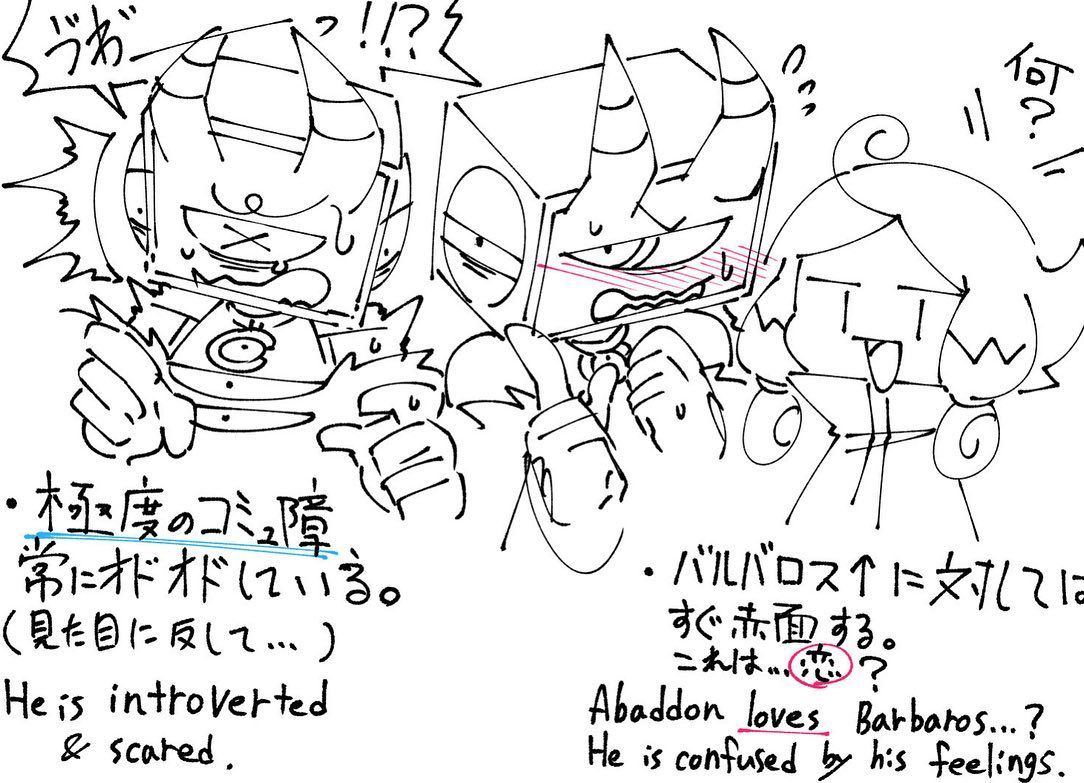 ヴわっ!!?
何
?
・極度のコミュ障
常にオドオドしている。
(見た目に反して...)
He is introverted
& scared.
・バルバロス↑に対しては
すぐ赤面する。
これは...恋?
Abaddon loves Barbaros...?
He is confused by his feelings.